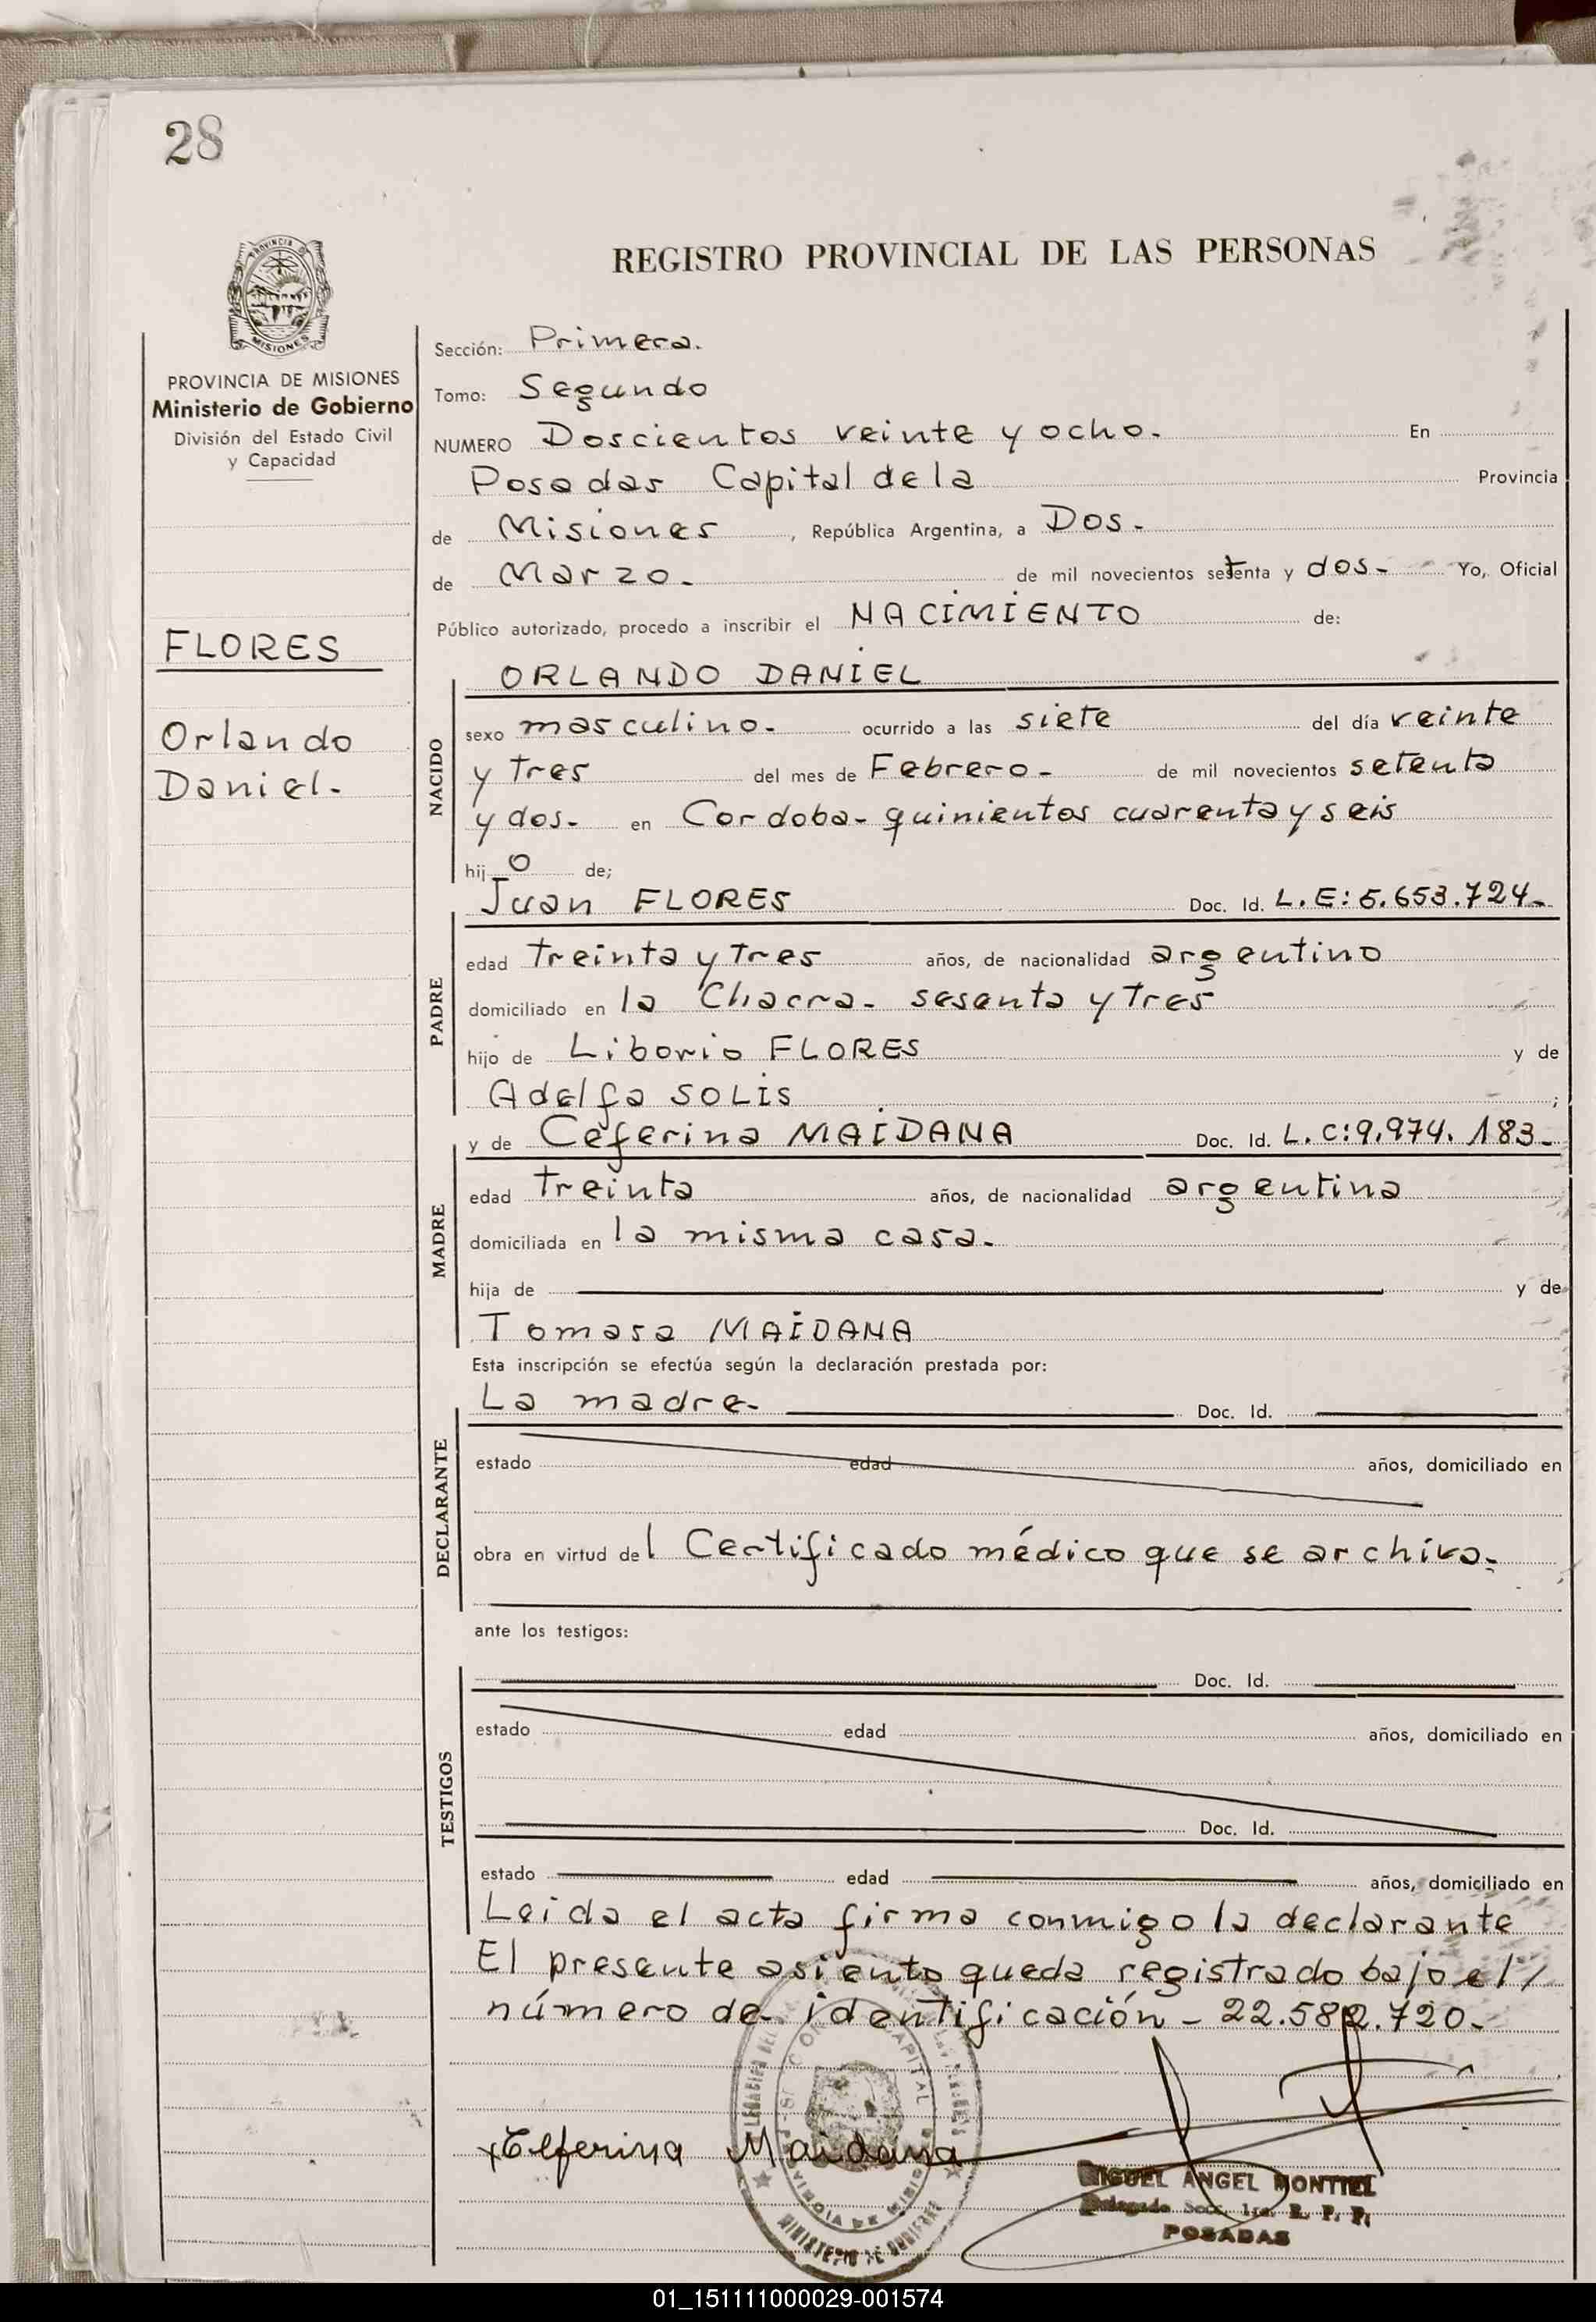 28
REGISTRO PROVINCIAL DE LAS PERSONAS
PROVINCIA DE MISIONES
Ministerio de Gobierno
División del Estado Civil
y Capacidad
FLORES
Orlando
Daniel.
Sección: Primera.
Tomo: Segundo
NUMERO Doscientos veinte y ocho. En
Posadas Capital de la Provincia
de Misiones, República Argentina, a Dos.
de Marzo. de mil novecientos setenta y dos. Yo, Oficial
Público autorizado, procedo a inscribir el NACIMIENTO de:
NACIDO
ORLANDO DANIEL
sexo masculino. ocurrido a las siete del día veinte
y tres del mes de Febrero. de mil novecientos setenta
y dos. en Cordoba. quinientos cuarenta y seis
hijo de;
PADRE
Juan FLORES Doc. Id. L.E: 5.653.724.
edad treinta y tres años, de nacionalidad argentino
domiciliado en la Chacra. sesenta y tres
hijo de Liborio FLORES y de
Adelfa SOLIS ;
MADRE
y de Ceferina MAIDANA Doc. Id. L.C: 9.974.183.
edad treinta años, de nacionalidad argentina
domiciliada en la misma casa.
hija de y de
Tomasa MAIDANA
Esta inscripción se efectúa según la declaración prestada por:
DECLARANTE
La madre. Doc. Id.
estado edad años, domiciliado en
obra en virtud del Certificado médico que se archiva.
ante los testigos:
TESTIGOS
Doc. Id.
estado edad años, domiciliado en
Doc. Id.
estado edad años, domiciliado en
Leida el acta firma conmigo la declarante
El presente asiento queda registrado bajo el /
número de identificación - 22.582.720.
Celferina Maidana
MIGUEL ANGEL MONTIEL
Delegado Secc. 1ra. R. P. P.
POSADAS
MINISTERIO DE GOBIERNO
01_151111000029-001574